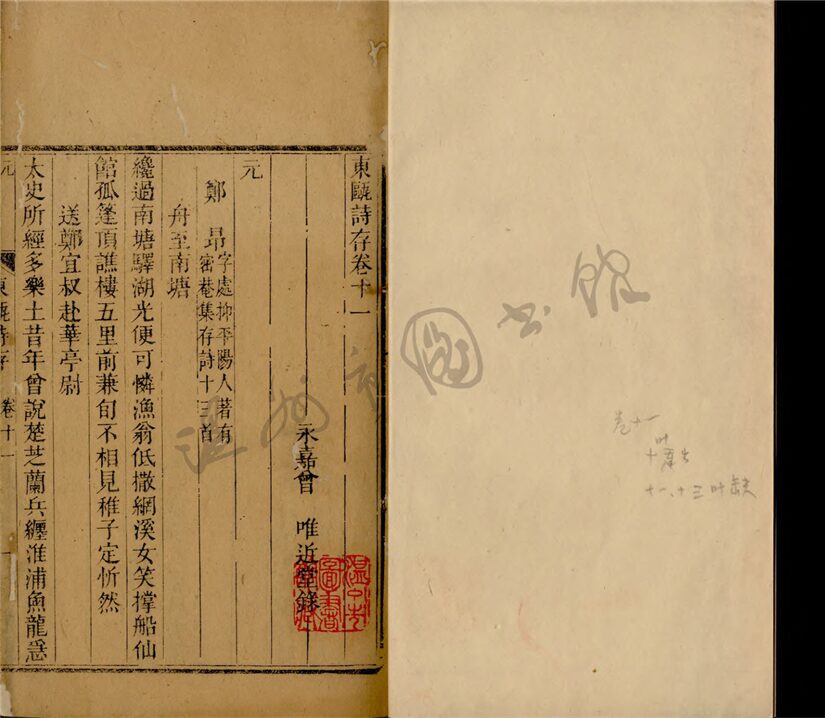 卷十一
十一、十三叶缺
東甌詩存卷十一
永嘉曾 唯近堂錄
元
鄭 昂 字處抑平陽人著有
密菴集存詩十三首
舟至南塘
纔過南塘驛湖光便可憐漁翁低撒網溪女笑撑船仙
館孤篷頂譙樓五里前兼旬不相見稚子定忻然
送鄭宜叔赴華亭尉
太史所經多樂土昔年曾說楚芝蘭兵纒淮浦魚龍急
元
東甌詩存
卷十一
一
温州市圖書館